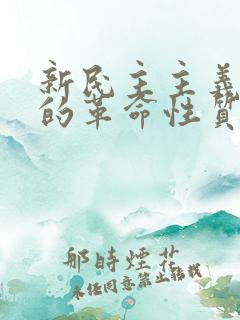 新民主主義
的革命性質
那時煙花
未经同意禁止轉載